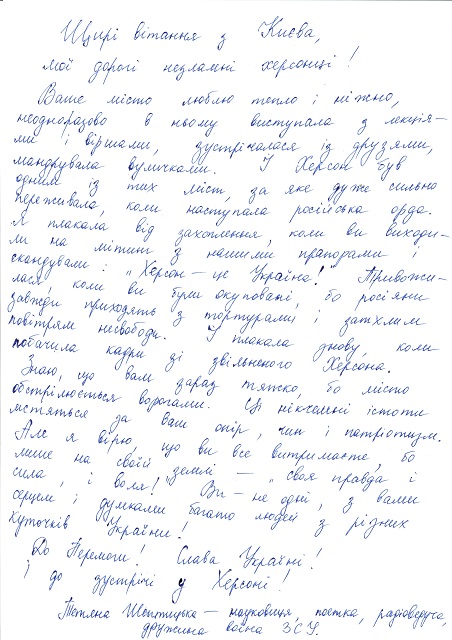 Щирі вітання з Києва,
мої дорогі незламні херсонці!
Ваше місто люблю тепло і ніжно,
неодноразово в ньому виступала з лекція-
ми і віршами, зустрічалася із друзями,
мандрувала вуличками. І Херсон був
одним із тих міст, за яке дуже сильно
переживала, коли наступала російська орда.
Я плакала від захоплення, коли ви виходи-
ли на мітинг з нашими прапорами і
скандували: "Херсон – це Україна!" Тривожи-
лася, коли ви були окуповані, бо росіяни
завжди приходять з тортурами і затхлим
повітрям несвободи. І плакала знову, коли
побачила кадри зі звільненого Херсона.
Знаю, що вам зараз тяжко, бо місто
обстрілюється ворогами. Ці нікчемні істоти
мстяться за ваш опір, чин і патріотизм.
Але я вірю, що ви все витримаєте, бо
лише на своїй землі – "своя правда і
сила, і воля!" Ви – не одні, з вами
серцем і думками багато людей з різних
куточків України!
До Перемоги! Слава Україні!
І до зустрічі у Херсоні!
Тетяна Шептицька – науковиця, поетка, радіоведуча,
дружина воїна ЗСУ